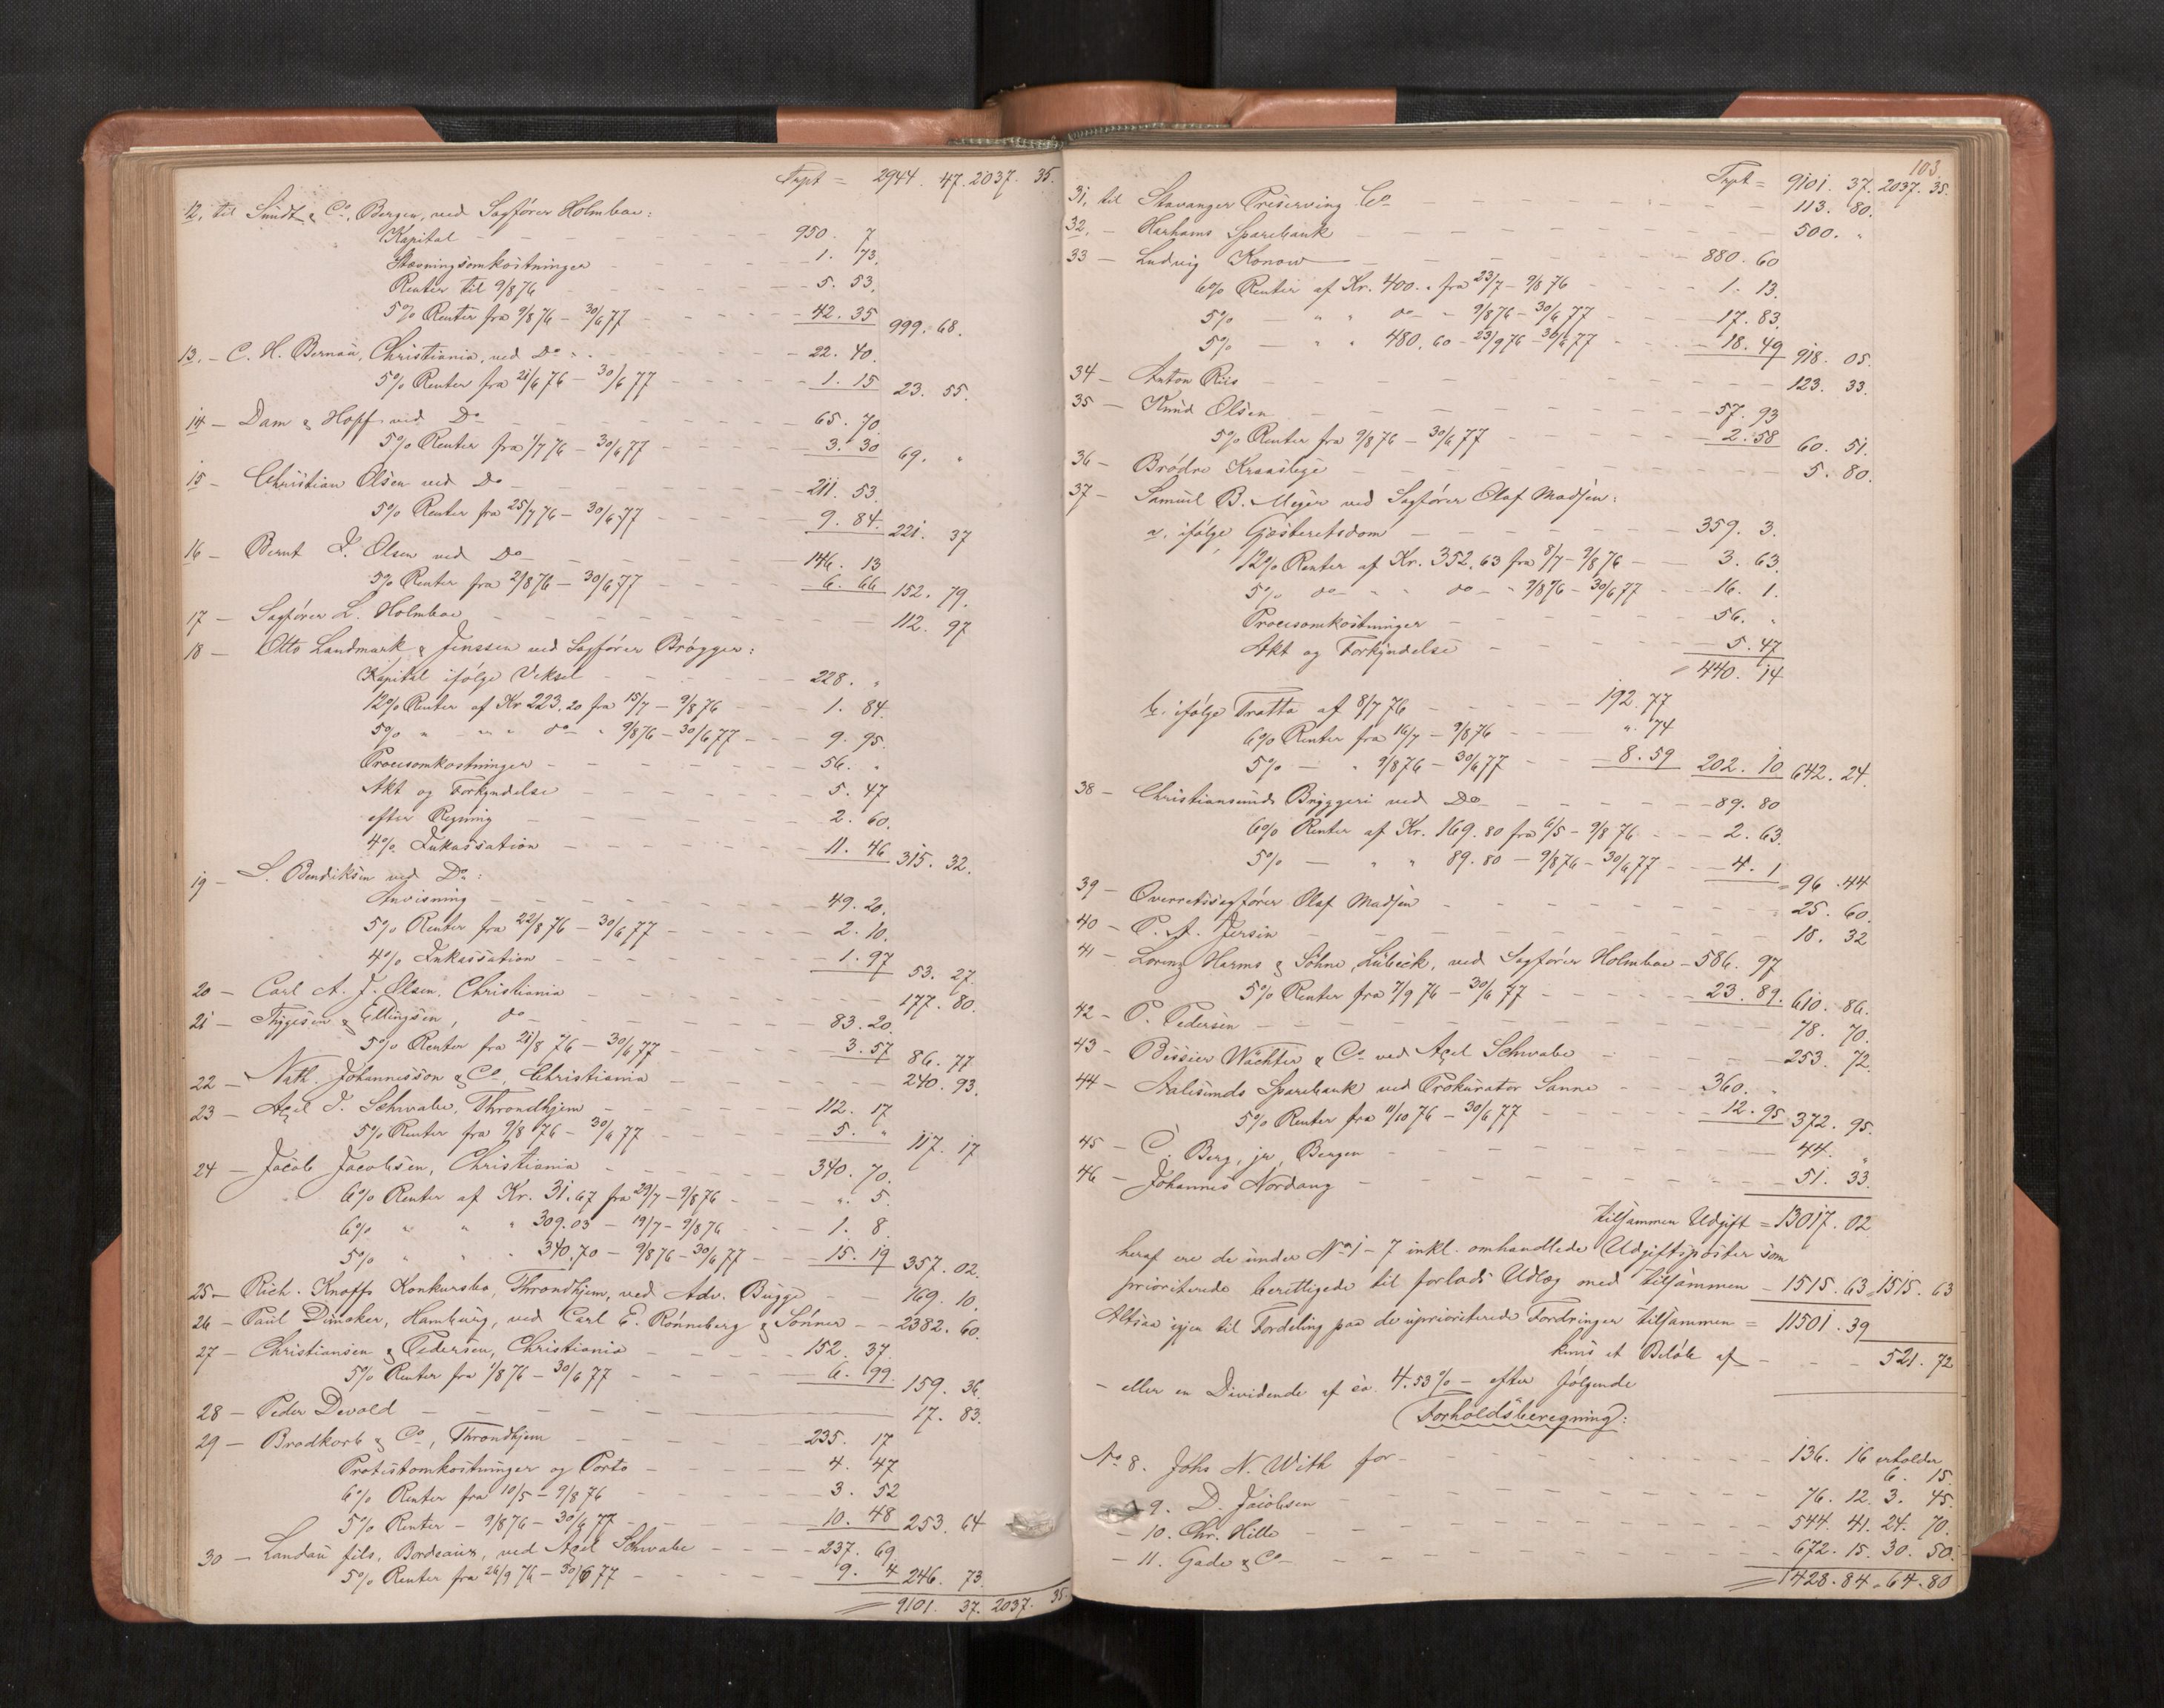 Trpt = 2944. 47. 2037. 35.
12, til Sundt & Co, Bergen, ved Sagfører Holmboe:
Kapital - - - 950. 7
Stævningsomkostninger - - 1. 73.
Renter til 9/8 76 - - 5. 53.
5% Renter fra 9/8 76 - 30/6 77 - - 42. 35 999. 68.
13. - C. H. Bernau, Christiania, ved Do - - 22. 40.
5% Renter fra 21/6 76 - 30/6 77 - - 1. 15 23. 55.
14 - Dam & Hopf ved Do - - 65. 70
5% Renter fra 1/7 76 - 30/6 77 - - 3. 30 69. "
15 - Christian Olsen ved Do - - 211. 53.
5% Renter fra 25/7 76 - 30/6 77 - - 9. 84. 221. 37
16 - Bernt J. Olsen ved Do - - 146. 13
5% Renter fra 2/8 76 - 30/6 77 - - 6. 66 152. 79.
17 - Sagfører L. Holmboe - - 112. 97
18 - Otto Landmark & Jenssen ved Sagfører Brøgger:
Kapital ifølge Veksel - - 228. "
12% Renter af Kr 223. 20 fra 15/7 - 9/8 76 - - 1. 84.
5% " " " do " 9/8 76 - 30/6 77 - - 9. 95.
Procesomkostninger - - 56. "
Akt og Forkyndelse - - 5. 47
efter Regning - - 2. 60.
4% Inkassation - - 11. 46 315. 32.
19 - S. Bendiksen ved Do:
Anvisning - - 49. 20.
5% Renter fra 22/8 76 - 30/6 77 - - 2. 10.
4% Inkassation - - 1. 97 53. 27.
20 - Carl A. J. Olsen, Christiania - - 177. 80.
21 - Thygesen & Ellingsen, do - - 83. 20.
5% Renter fra 21/8 76 - 30/6 77 - - 3. 57 86. 77
22 - Nath. Johannesson & Co, Christiania - - 240. 93.
23 - Axel J. Schwabe, Throndhjem - - 112. 17
5% Renter fra 9/8 76 - 30/6 77 - - 5. " 117. 17
24 - Jacob Jacobsen, Christiania - - 340. 70.
6% Renter af Kr. 31. 67 fra 29/7 - 9/8 76 - - ". 5.
6% " " " 309. 03 - 19/7 - 9/8 76 - - 1. 8
5% " " " 340. 70 - 9/8 76 - 30/6 77 - - 15. 19 357. 02.
25 - Rich. Knoffs Konkursbo, Throndhjem, ved Adv. Bugge - - 169. 10.
26 - Paul Dincker, Hamburg, ved Carl E. Rønneberg & Sønner - - 2382. 60.
27 - Christiansen & Pedersen, Christiania - - 152. 37.
5% Renter fra 1/8 76 - 30/6 77 - - 6. 99 159. 36.
28 - Peder Devold - - 17. 83.
29 - Brodkorb & Co, Throndhjem - - 235. 17
Protestomkostninger og Porto - - 4. 47
6% Renter fra 10/5 - 9/8 76 - - 3. 52
5% Renter - 9/8 76 - 30/6 77 - - 10. 48 253. 64
30 - Landau fils, Bordeaux, ved Axel Schwabe - - 237. 69
5% Renter fra 26/9 76 - 30/6 77 - - 9. 4 246. 73.
9101. 37. 2037. 35.
103.
Trpt = 9101. 37. 2037. 35.
31, til Stavanger Preserving Co - - 113. 80.
32, - Harhams Sparebank - - 500. "
33 - Ludvig Konow - - 880. 60
6% Renter af Kr. 400. " fra 23/7 - 9/8 76 - - 1. 13.
5% - " " do - 9/8 76 - 30/6 77 - - 17. 83.
5% - " " 480. 60 - 23/9 76 - 30/6 77 - - 18. 49 918. 05.
34 - Anton Riis - - 123. 33.
35 - Knud Olsen - - 57. 93
5% Renter fra 9/8 76 - 30/6 77 - - 2. 58 60. 51.
36 - Brødre Kraaslege - - 5. 80.
37 - Samuel B. Meyer ved Sagfører Olaf Madsen:
a, ifølge Gjæsteretsdom - - 359. 3.
12% Renter af Kr. 352. 63 fra 8/7 - 9/8 76 - - 3. 63.
5% do " " do - 9/8 76 - 30/6 77 - - 16. 1.
Procesomkostninger - - 56. "
Akt og Forkyndelse - - 5. 47
= 440. 14
b. ifølge Tratta af 8/7 76 - - 192. 77
6% Renter fra 16/7 - 9/8 76 - - ". 74
5% - " 9/8 76 - 30/6 77 - - 8. 59 202. 10 642. 24.
38 - Christiansunds Bryggeri ved Do - - 89. 80
6% Renter af Kr. 169. 80 fra 6/5 - 9/8 76 - - 2. 63.
5% - " " 89. 80 - 9/8 76 - 30/6 77 - - 4. 1 96. 44
39 - Overretssagfører Olaf Madsen - - 25. 60.
40 - P. A. Jersin - - 18. 32
41 - Lorenz Harms & Söhne, Lübeck, ved Sagfører Holmboe - 586. 97
5% Renter fra 7/9 76 - 30/6 77 - - 23. 89. 610. 86.
42 - P. Pedersen - - 78. 70.
43 - Bissier Wächter & Co ved Axel Schwabe - - 253. 72.
44 - Aalesunds Sparebank ved Prokurator Sanne - - 360. "
5% Renter fra 11/10 76 - 30/6 77 - - 12. 95 372. 95.
45 - C. Berg, jr, Bergen - - 44. "
46 - Johannes Nordang - - 51. 33.
tilsammen Udgift = 13017. 02
heraf ere de under No 1 - 7 inkl. omhandlede Udgiftsposter som
prioriterede berettigede til forlods Udlæg med tilsammen - 1515. 63. 1515. 63
Altsaa igjen til Fordeling paa de uprioriterede Fordringer tilsammen = 11501. 39
kuns et Beløb af - - - 521. 72
- eller en Dividende af ca. 4.53% - efter følgende
Forholdsberegning:
No 8. Johs N. With for - - 136. 16 erholder
6. 15.
- 9. D. Jacobsen - - 76. 12. 3. 45.
- 10. Chr. Hille - - 544. 41. 24. 70.
- 11. Gade & Co - - 672. 15. 30. 50.
1428. 84. 64. 80